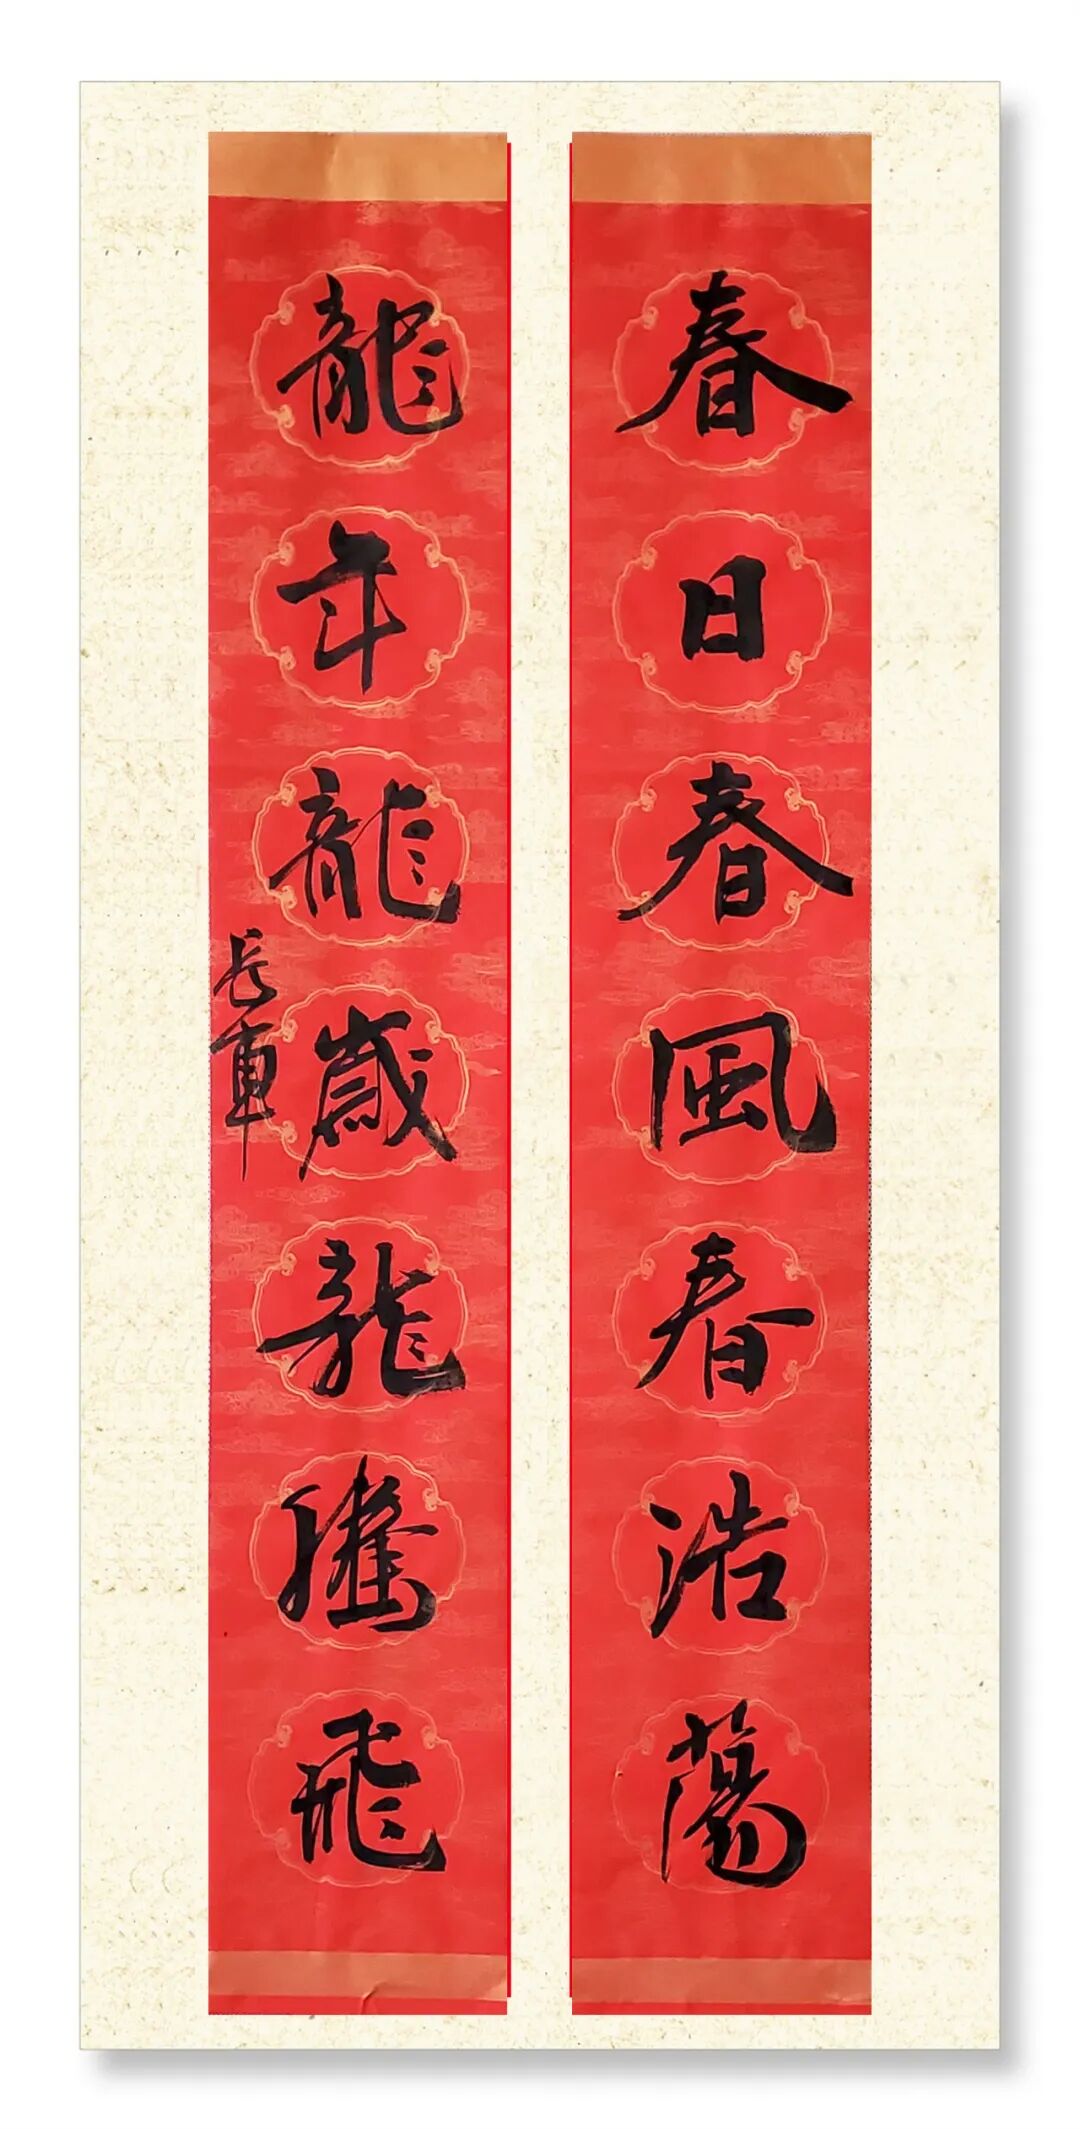 春日春風春浩蕩
龍年龍歲龍騰飛
長軍